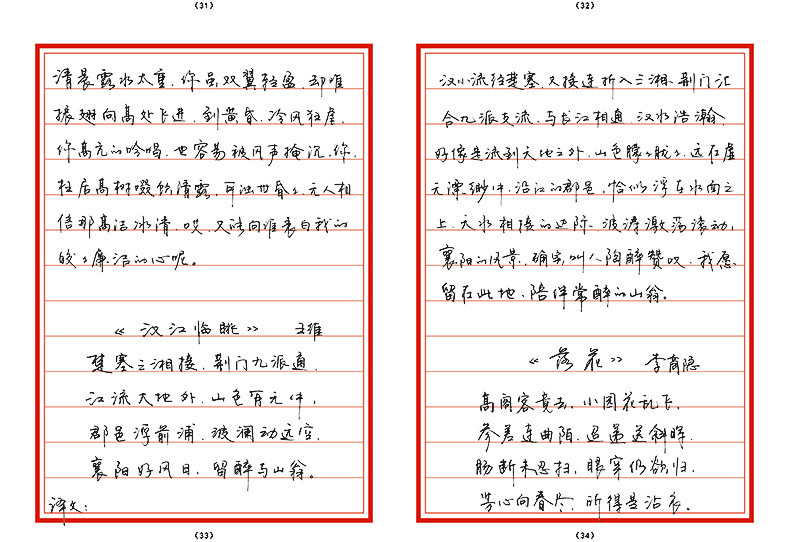 (31)
清晨露水太重，你虽双翼轻盈，却难
振翅向高处飞进，到黄昏，冷风狂虐，
你高亢的吟唱，也容易被风声掩沉，你
栖居高树啜饮清露，可浊世昏昏，无人相
信那高洁冰清，哎，又能向谁表白我的
皎皎廉洁的心呢。
《汉江临眺》 王维
楚塞三湘接，荆门九派通，
江流天地外，山色有无中，
郡邑浮前浦，波澜动远空，
襄阳好风日，留醉与山翁。
译文：
(33)
(32)
汉水流经楚塞，又接连折入三湘，荆门汇
合九派支流，与长江相通，汉水浩瀚，
好像是流到天地之外，山色朦朦胧胧，远在虚
无缥缈中，沿江的郡邑，恰似浮在水面之
上，天水相接的边际，波涛激荡滚动，
襄阳的风景，确实叫人陶醉赞叹，我愿
留在此地，陪伴常醉的山翁。
《落花》 李商隐
高阁客竟去，小园花乱飞，
参差连曲陌，迢递送斜晖，
肠断未忍扫，眼穿仍欲归，
芳心向春尽，所得是沾衣。
(34)